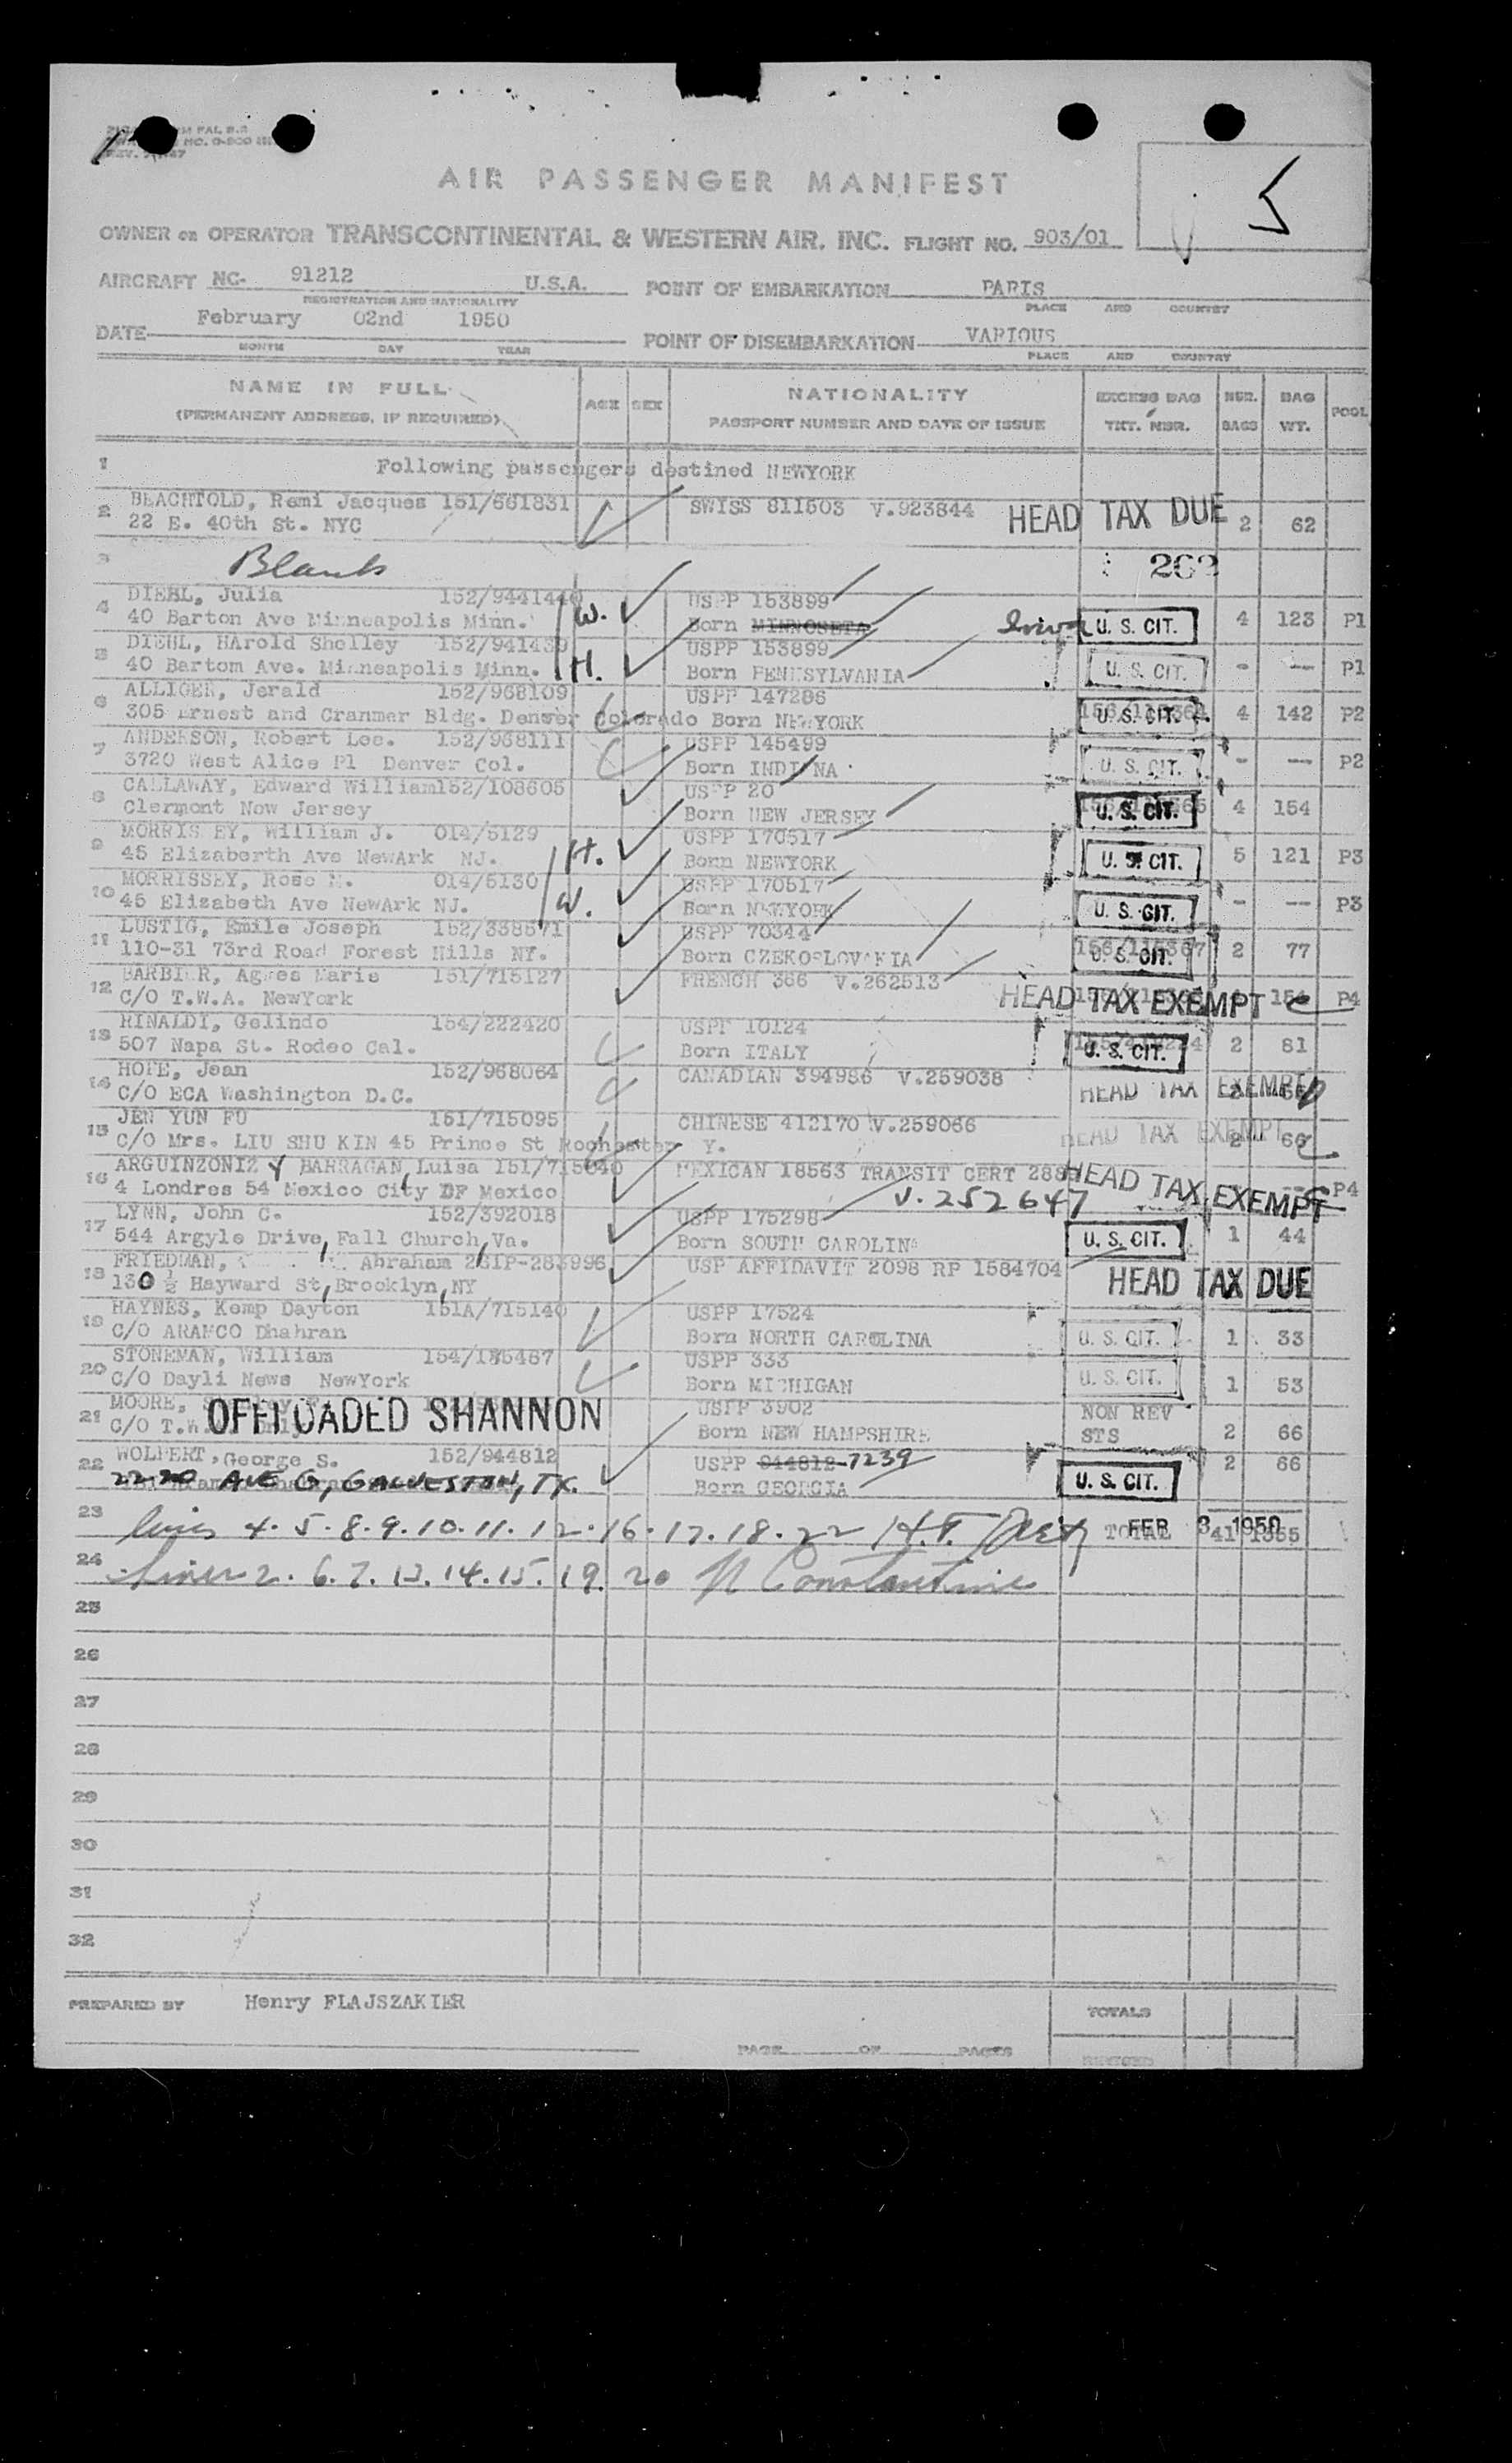 AIR PASSENGER MANIFEST
5
OWNER OR OPERATOR TRANSCONTINENTAL & WESTERN AIR, INC. FLIGHT NO. 903/01
AIRCRAFT NC- 91212 U.S.A. POINT OF EMBARKATION PARIS
REGISTRATION AND NATIONALITY PLACE AND COUNTRY
DATE February 02nd 1950 POINT OF DISEMBARKATION VARIOUS
MONTH DAY YEAR PLACE AND COUNTRY
NAME IN FULL AGE SEX NATIONALITY EXCESS BAG NBR. BAG POOL
(PERMANENT ADDRESS, IF REQUIRED) PASSPORT NUMBER AND DATE OF ISSUE TKT. NBR. BAGS WT.
1 Following passengers destined NEWYORK
2 BLACHTOLD, Remi Jacques 151/661831 SWISS 811503 V.923844 HEAD TAX DUE 2 62
22 E. 40th St. NYC
3 Blank 262
4 DIEHL, Julia 152/9441440 W. USPP 153899
40 Barton Ave Minneapolis Minn. Born MINNOSETA Iowa U. S. CIT. 4 123 P1
5 DIEHL, HArold Shelley 152/941439 USPP 153899
40 Bartom Ave. Minneapolis Minn. H. Born PENNSYLVANIA U. S. CIT. - -- P1
6 ALLIGER, Jerald 152/968109 USPP 147286
305 Ernest and Cranmer Bldg. Denver Colorado Born NEWYORK U. S. CIT. 4 142 P2
7 ANDERSON, Robert Lee. 152/968111 USPP 145499
3720 West Alice Pl Denver Col. Born INDIANA U. S. CIT. - -- P2
8 CALLAWAY, Edward William152/108605 USPP 20
Clermont New Jersey Born NEW JERSEY U. S. CIT. 4 154
9 MORRIS EY, William J. 014/5129 USPP 170517
45 Elizaberth Ave NewArk NJ. H. Born NEWYORK U. S. CIT. 5 121 P3
10 MORRISSEY, Rose M. 014/5130 USPP 170517
45 Elizabeth Ave NewArk NJ. W. Born NEWYORK U. S. CIT. - -- P3
11 LUSTIG, Emile Joseph 152/338571 USPP 70344
110-31 73rd Road Forest Hills NY. Born CZEKOSLOVAKIA 156/115367 U. S. CIT. 2 77
12 BARBIER, Agnes Marie 151/715127 FRENCH 366 V.262513
C/O T.W.A. NewYork HEAD TAX EXEMPT 154 P4
13 RINALDI, Gelindo 154/222420 USPP 10124
507 Napa St. Rodeo Cal. Born ITALY U. S. CIT. 2 81
14 HOPE, Jean 152/968064 CANADIAN 394986 V.259038
C/O ECA Washington D.C. HEAD TAX EXEMPT
15 JEN YUN FU 151/715095 CHINESE 412170 V.259066
C/O Mrs. LIU SHU KIN 45 Prince St Rochester Y. HEAD TAX EXEMPT 2 66
16 ARGUINZONIZ Y BARRAGAN, Luisa 151/715040 MEXICAN 18563 TRANSIT CERT HEAD TAX EXEMPT P4
4 Londres 54 Mexico City DF Mexico V.252647
17 LYNN, John C. 152/392018 USPP 175298
544 Argyle Drive, Fall Church, Va. Born SOUTH CAROLINA U. S. CIT. 1 44
18 FRIEDMAN, Abraham 281P-283996 USP AFFIDAVIT 2098 RP 1584704
130 ½ Hayward St, Brooklyn, NY HEAD TAX DUE
19 HAYNES, Kemp Dayton 151A/715140 USPP 17524
C/O ARAMCO Dhahran Born NORTH CAROLINA U. S. CIT. 1 33
20 STONEMAN, William 154/185467 USPP 333
C/O Dayli News NewYork Born MICHIGAN U. S. CIT. 1 53
21 MOORE, USPP 3902 NON REV
C/O T.W. OFFLOADED SHANNON Born NEW HAMPSHIRE STS 2 66
22 WOLPERT, George S. 152/944812 USPP 944812 7239 2 66
2220 AVE G, GALVESTON, TX. Born GEORGIA U. S. CIT.
23 lines 4.5.8.9.10.11.12.16.17.18.22 TOTAL FEB 3 1950 41 1355
24 Lines 2. 6. 7. 13. 14. 15. 19. 20 N Constantine
25
26
27
28
29
30
31
32
PREPARED BY Henry FLAJSZAKIER TOTALS
PAGE OF PAGES